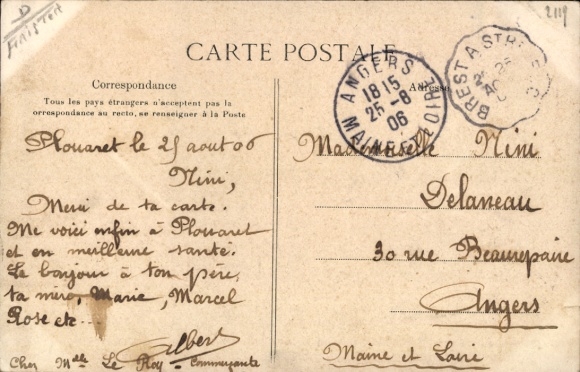 D
FINISTER
2119
CARTE POSTALE
Correspondance
Tous les pays étrangers n'acceptent pas la
correspondance au recto, se renseigner à la Poste
Adresse
ANGERS
18 15
25-8
06
MAINE ET LOIRE
BREST A ST BRIEUC
25
AOUT
Plouaret le 25 aout 06
Nini,
Merci de ta carte.
Me voici enfin à Plouaret
et en meilleure santé.
Le bonjour à ton père,
ta mère, Marie, Marcel
Rose etc...
Albert
Chez Melle Le Roy - Commerçante
Mademoiselle Nini
Delaneau
30 rue Beaurepaire
Angers
Maine et Loire